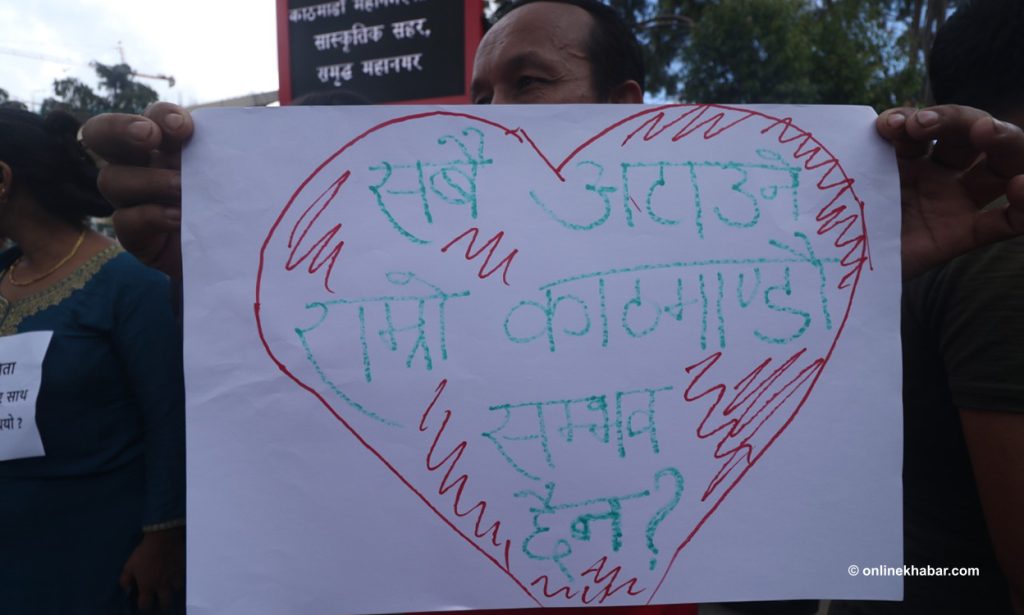 काठमाडौं
सांस्कृतिक सहर,
समृद्ध महानगर
सबै अटाउने
राम्रो काठमाण्डौ
सम्भव
छैन?
साथ
© onlinekhabar.com